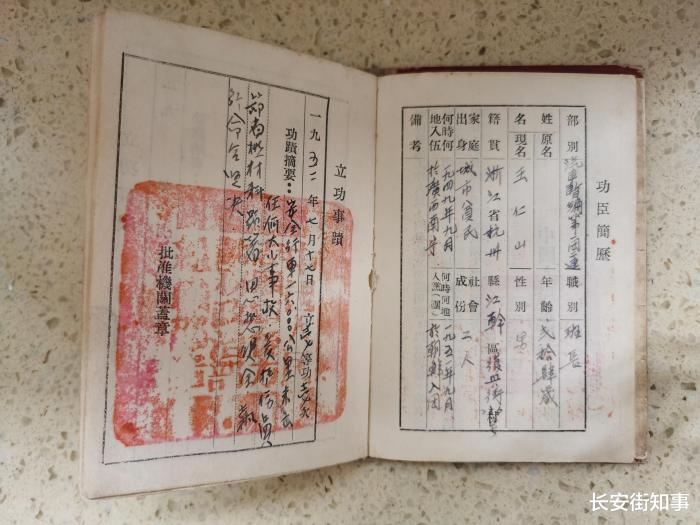 功臣簡歷
部別 汽車 團 連 職別 班長
姓名 原名 年齡 貳拾肆歲
現名 王仁山 性別 男
籍貫 浙江省杭州縣江幹區 街
家庭出身 城市貧民 社會成份 工人
何時何地入伍 一九四九年九月於廣西南寧 何時何地入黨(團) 一九五一年九月於朝鮮入團
備考
立功事蹟
一九五二年七月十七日 立 等功 次
功蹟摘要：安全行車一六〇〇〇公里未出
任何大小事故
節省 材料 思想
命令堅決
批准機關蓋章
长安街知事